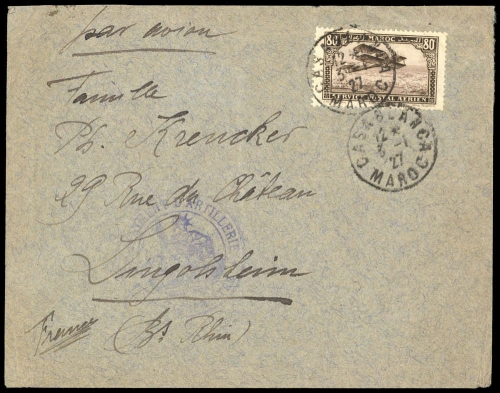 par avion
80 MAROC 80
SERVICE POSTAL AÉRIEN
CASABLANCA
12
27
MAROC
CASABLANCA
12
27
MAROC
Famille
Ph. Krencker
29 Rue du Château
ARTILLERIE
Lingolsheim
France (Bs Rhin)